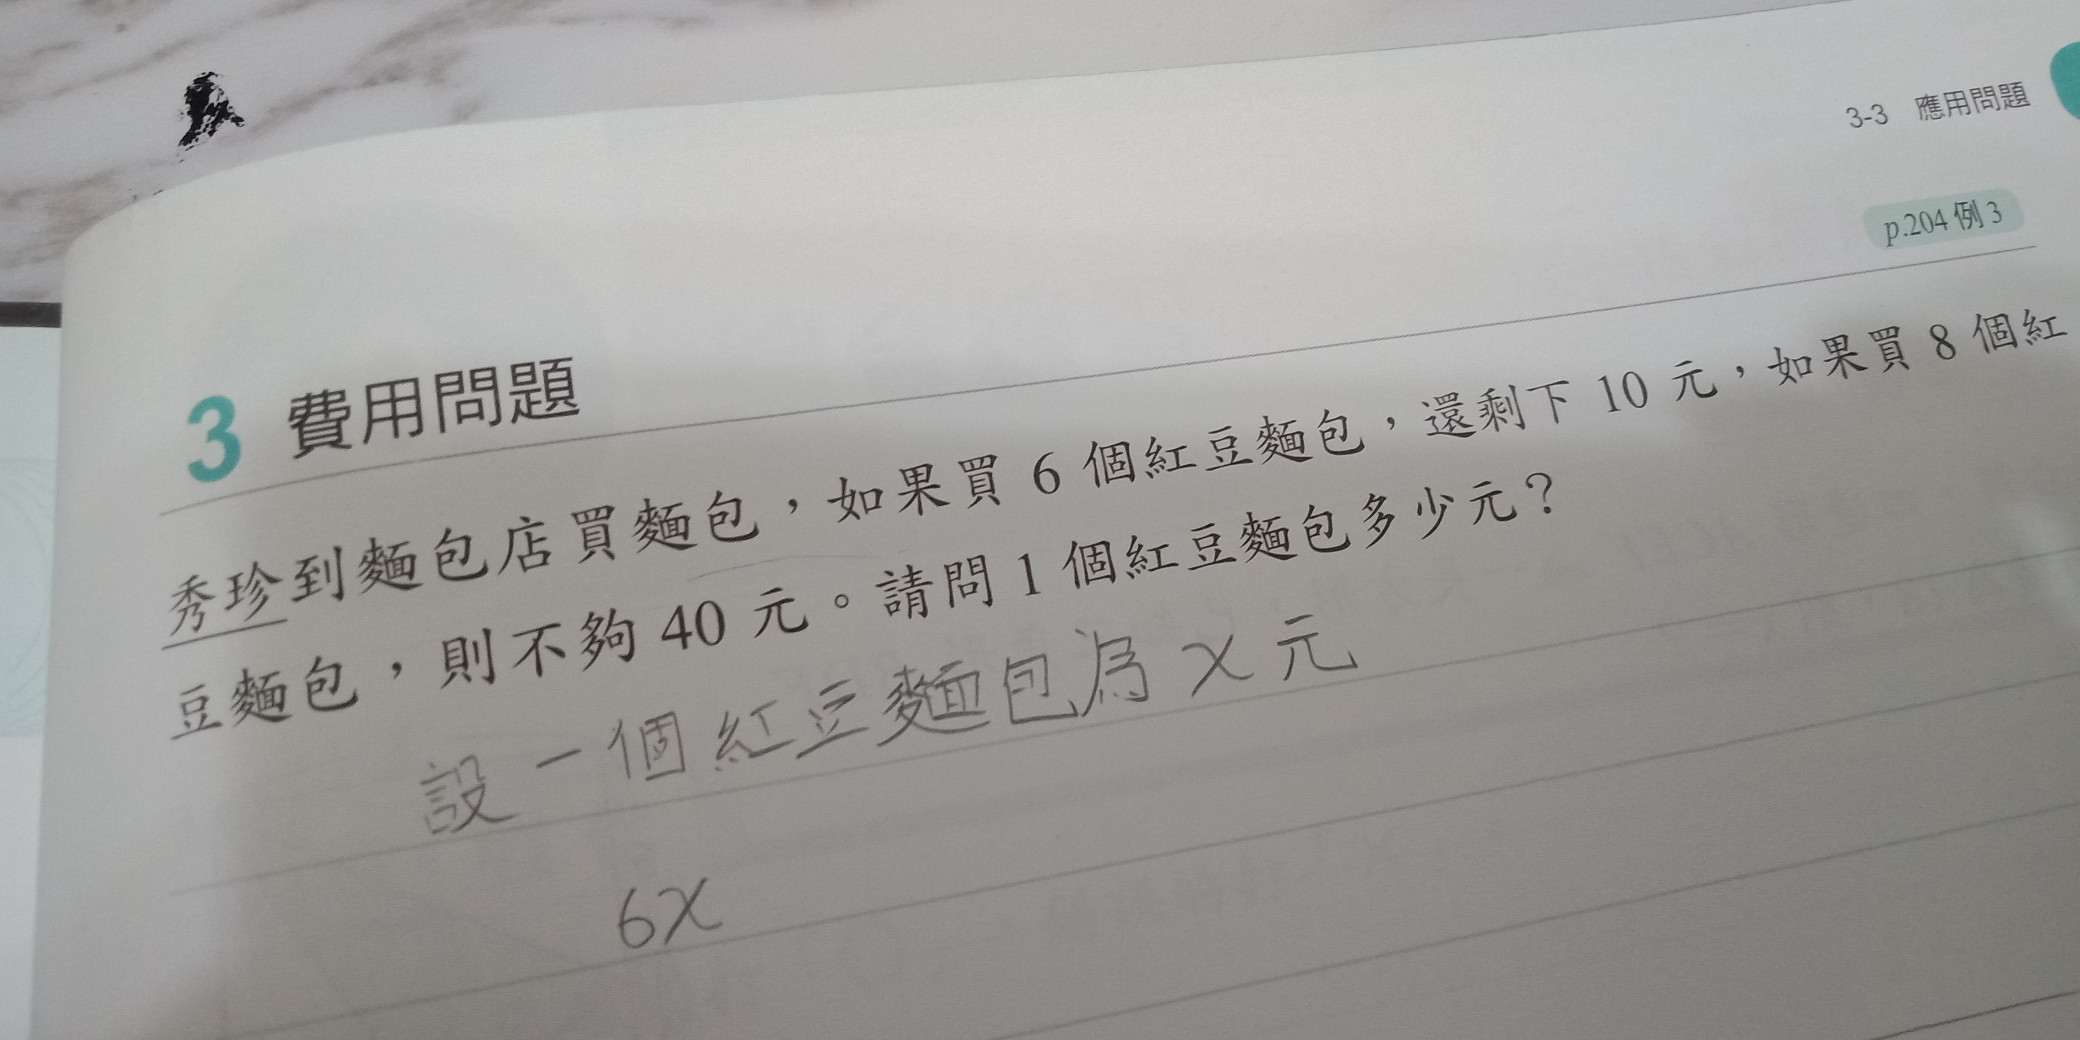 3-3 應用問題
p.204 例 3
3 費用問題
秀珍到麵包店買麵包，如果買 6 個紅豆麵包，還剩下 10 元，如果買 8 個紅
豆麵包，則不夠 40 元。請問 1 個紅豆麵包多少元？
設一個紅豆麵包為 x 元
6x